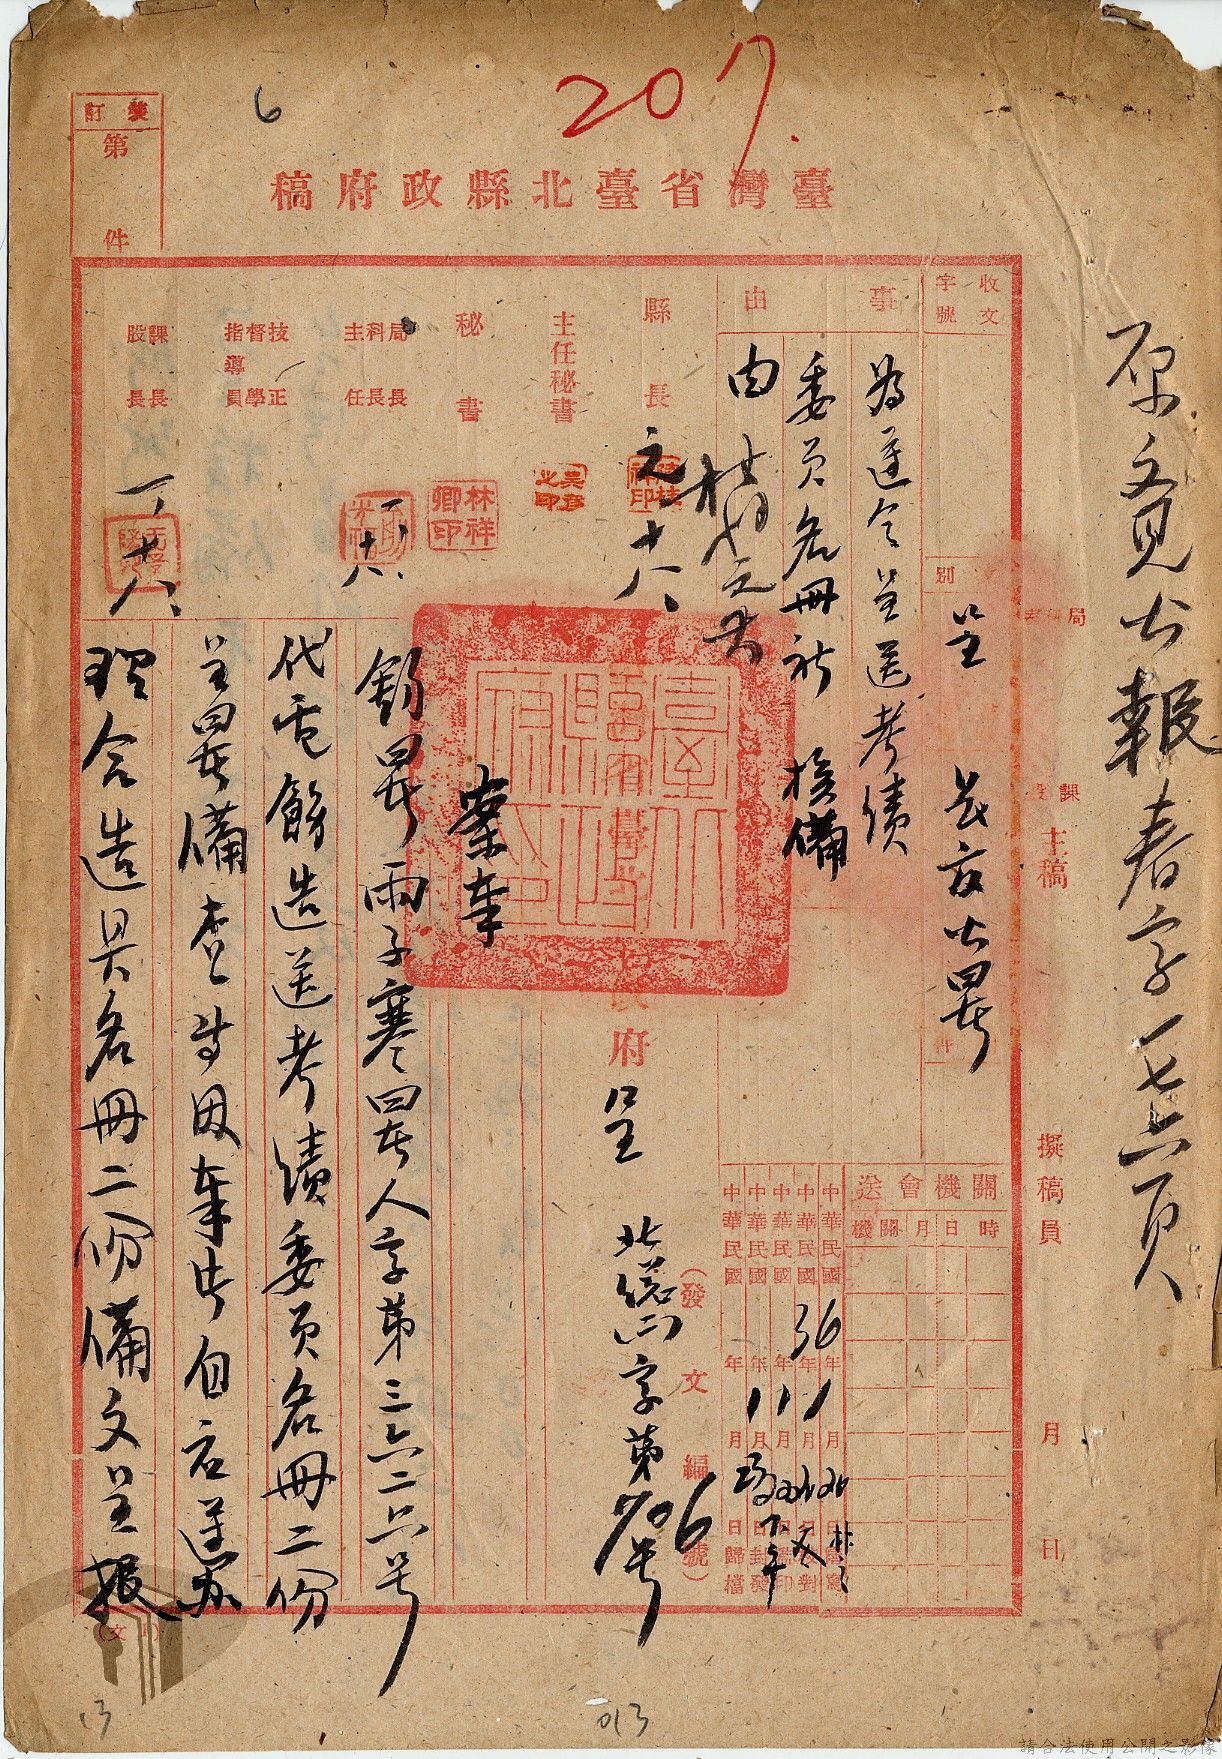 207.
6
臺灣省臺北縣政府稿
裝訂
第 件
原文見公報春字一七六頁
局
課
主稿
擬稿員
月
日
收文
字號
別
呈
長官公署
事由
為遵令呈送考績
委員名冊祈 核備
由
縣長
元 十八
主任秘書
秘書
林祥卿印
局長
科長
主任
技正
督學
指導員
課長
股長
一、十八
關機會送
關機
月
日
時
中華民國36年1月
中華民國 年1月
中華民國 年1月
中華民國 年 月
日繕寫
日校對
日蓋印
日封發
日歸檔
府 呈
(發文編號)
字第706號
案奉
鈞署雨子寒署人字第三六二六號
代電飭造送考績委員名冊二份
呈署備查等因奉此自應遵辦
理合造具名冊二份備文呈報
(文)
13
013
請合法使用公開之影像